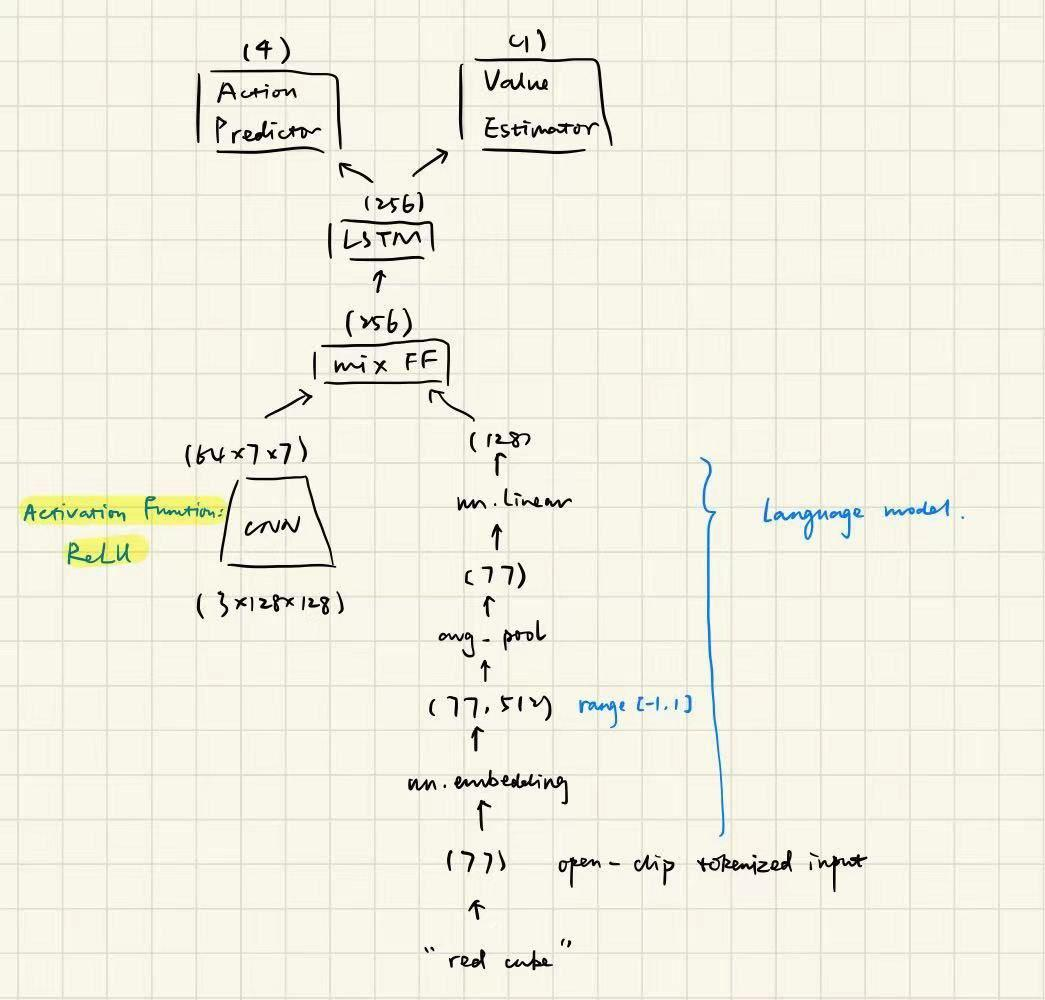 (4)
Action
Predictor
(1)
Value
Estimator
(256)
LSTM
(256)
mix FF
(64×7×7)
Activation Function:
ReLU
CNN
(3×128×128)
(128)
nn.Linear
(77)
avg-pool
(77,512) range [-1,1]
nn.embedding
(77) open-clip tokenized input
"red cube"
Language model.